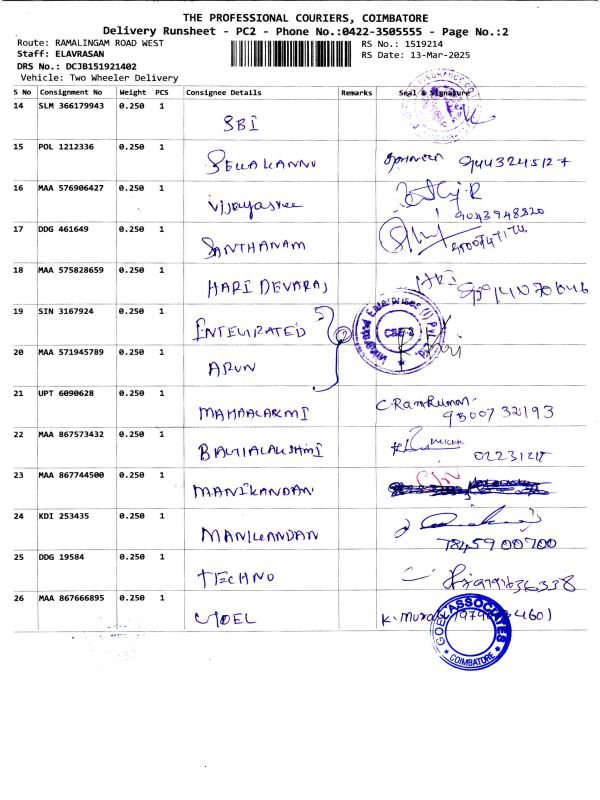 THE PROFESSIONAL COURIERS, COIMBATORE
Delivery Runsheet - PC2 - Phone No.:0422-3505555 - Page No.:2
Route: RAMALINGAM ROAD WEST RS No.: 1519214
Staff: ELAVRASAN RS Date: 13-Mar-2025
DRS No.: DCJB151921402
Vehicle: Two Wheeler Delivery
S No Consignment No Weight PCS Consignee Details Remarks Seal & Signature
14 SLM 366179943 0.250 1
SBI
15 POL 1212336 0.250 1
9443245127
16 MAA 576906427 0.250 1
Vijayasree
9043948820
17 DDG 461649 0.250 1
SANTHANAM
18 MAA 575828659 0.250 1
HARI DEVARAJ
HARI
19 SIN 3167924 0.250 1
Integrated Enterprises (I) Pvt.
20 MAA 571945789 0.250 1
ARUN
21 UPT 6090628 0.250 1
C. Ramkumar
MAHAALAKMI
9500732193
22 MAA 867573432 0.250 1
23 MAA 867744500 0.250 1
MANIKANDAN
24 KDI 253435 0.250 1
MANIKANDAN
7845900700
25 DDG 19584 0.250 1
TECHNO
26 MAA 867666895 0.250 1
GOEL
K. Murali
GOEL ASSOCIATES
COIMBATORE